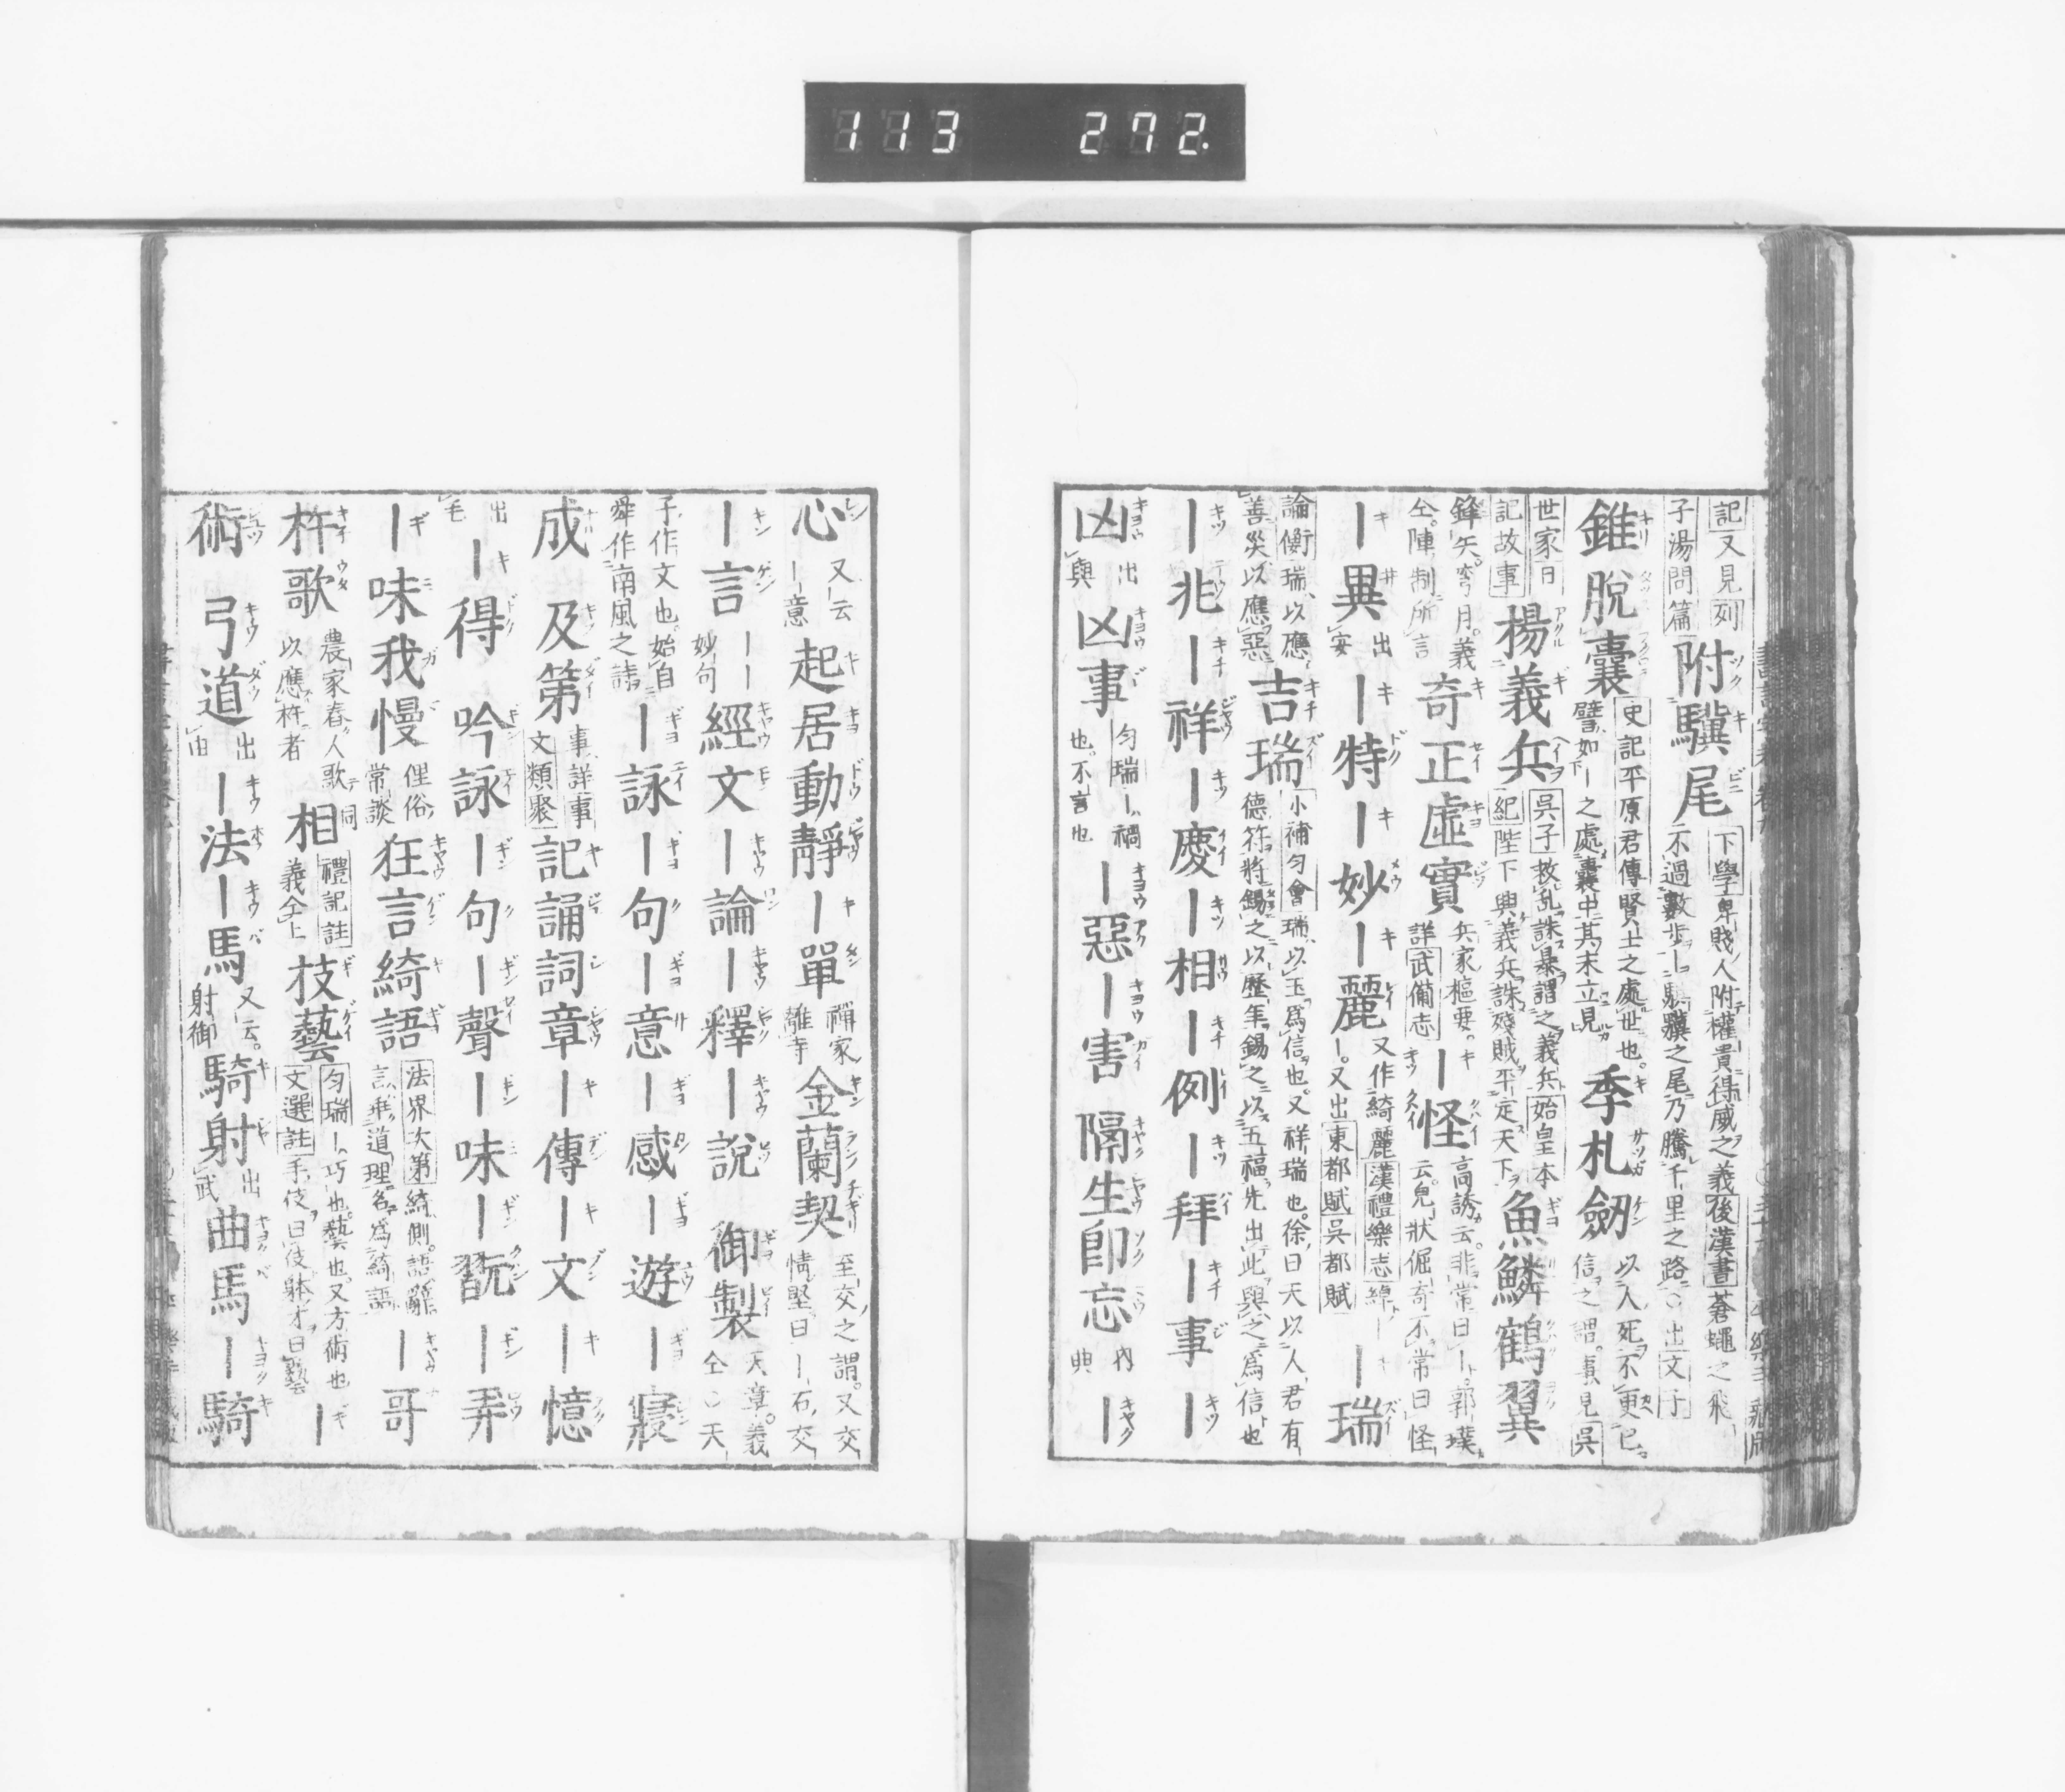 113 272.
記又見列
子湯問篇
附驥尾
下學卑賤人附權貴得威之義後漢書蒼蠅之飛
不過數步一騏驥之尾乃騰千里之路○出文子
錐脫囊
史記平原君傳賢士之處世也
譬如一之處囊中其末立見
季札劒
以人死不更已
信之謂事見吳
世家曰
記故事
楊義兵
吳子救乱誅暴謂之義兵始皇本
紀陛下興義兵誅殘賊平定天下
魚鱗鶴翼
鋒矢彎月義
仝陣制所言
奇正虛實
兵家樞要
詳武備志
一怪
高誘云非常曰一郭璞
云皃狀倔奇不常曰怪
一異
出
安
一特一妙一麗
又作綺麗漢禮樂志
一又出東都賦吳都賦
一瑞
論衡瑞以應
善災以應惡
吉瑞
小補匀會瑞以玉爲信也又祥瑞也徐曰天以人君有
德符將錫之以歷年錫之以五福先出此與之爲信也
一兆一祥一慶一相一例一拜一事一
凶
出
輿
凶事
匀瑞一禍
也不言也
一惡一害隔生即忘
内
典
一
心
又云
一意
起居動靜一單
禪家
離寺
金蘭契
至交之謂又交
情堅曰一石交
一言
一一
妙句
經文一論一釋一說御製
天章義
仝○天
子作文也始自
舜作南風之詩
一詠一句一意一感一遊一寝
成及第
事詳事
文類聚
記誦詞章一傳一文一憶
出
毛
一得吟詠一句一聲一味一翫一弄
一味我慢
俚俗
常談
狂言綺語
法界次第綺側語辭
言乖道理名爲綺語
一哥
杵歌
農家舂人歌
以應杵者
相
同
禮記註
義仝上
技藝
匀瑞一巧也藝也又方術也
文選註手伎曰伎躰才曰藝
一
術弓道
出
由
一法一馬
又云
射御
騎射
出
武
曲馬一騎